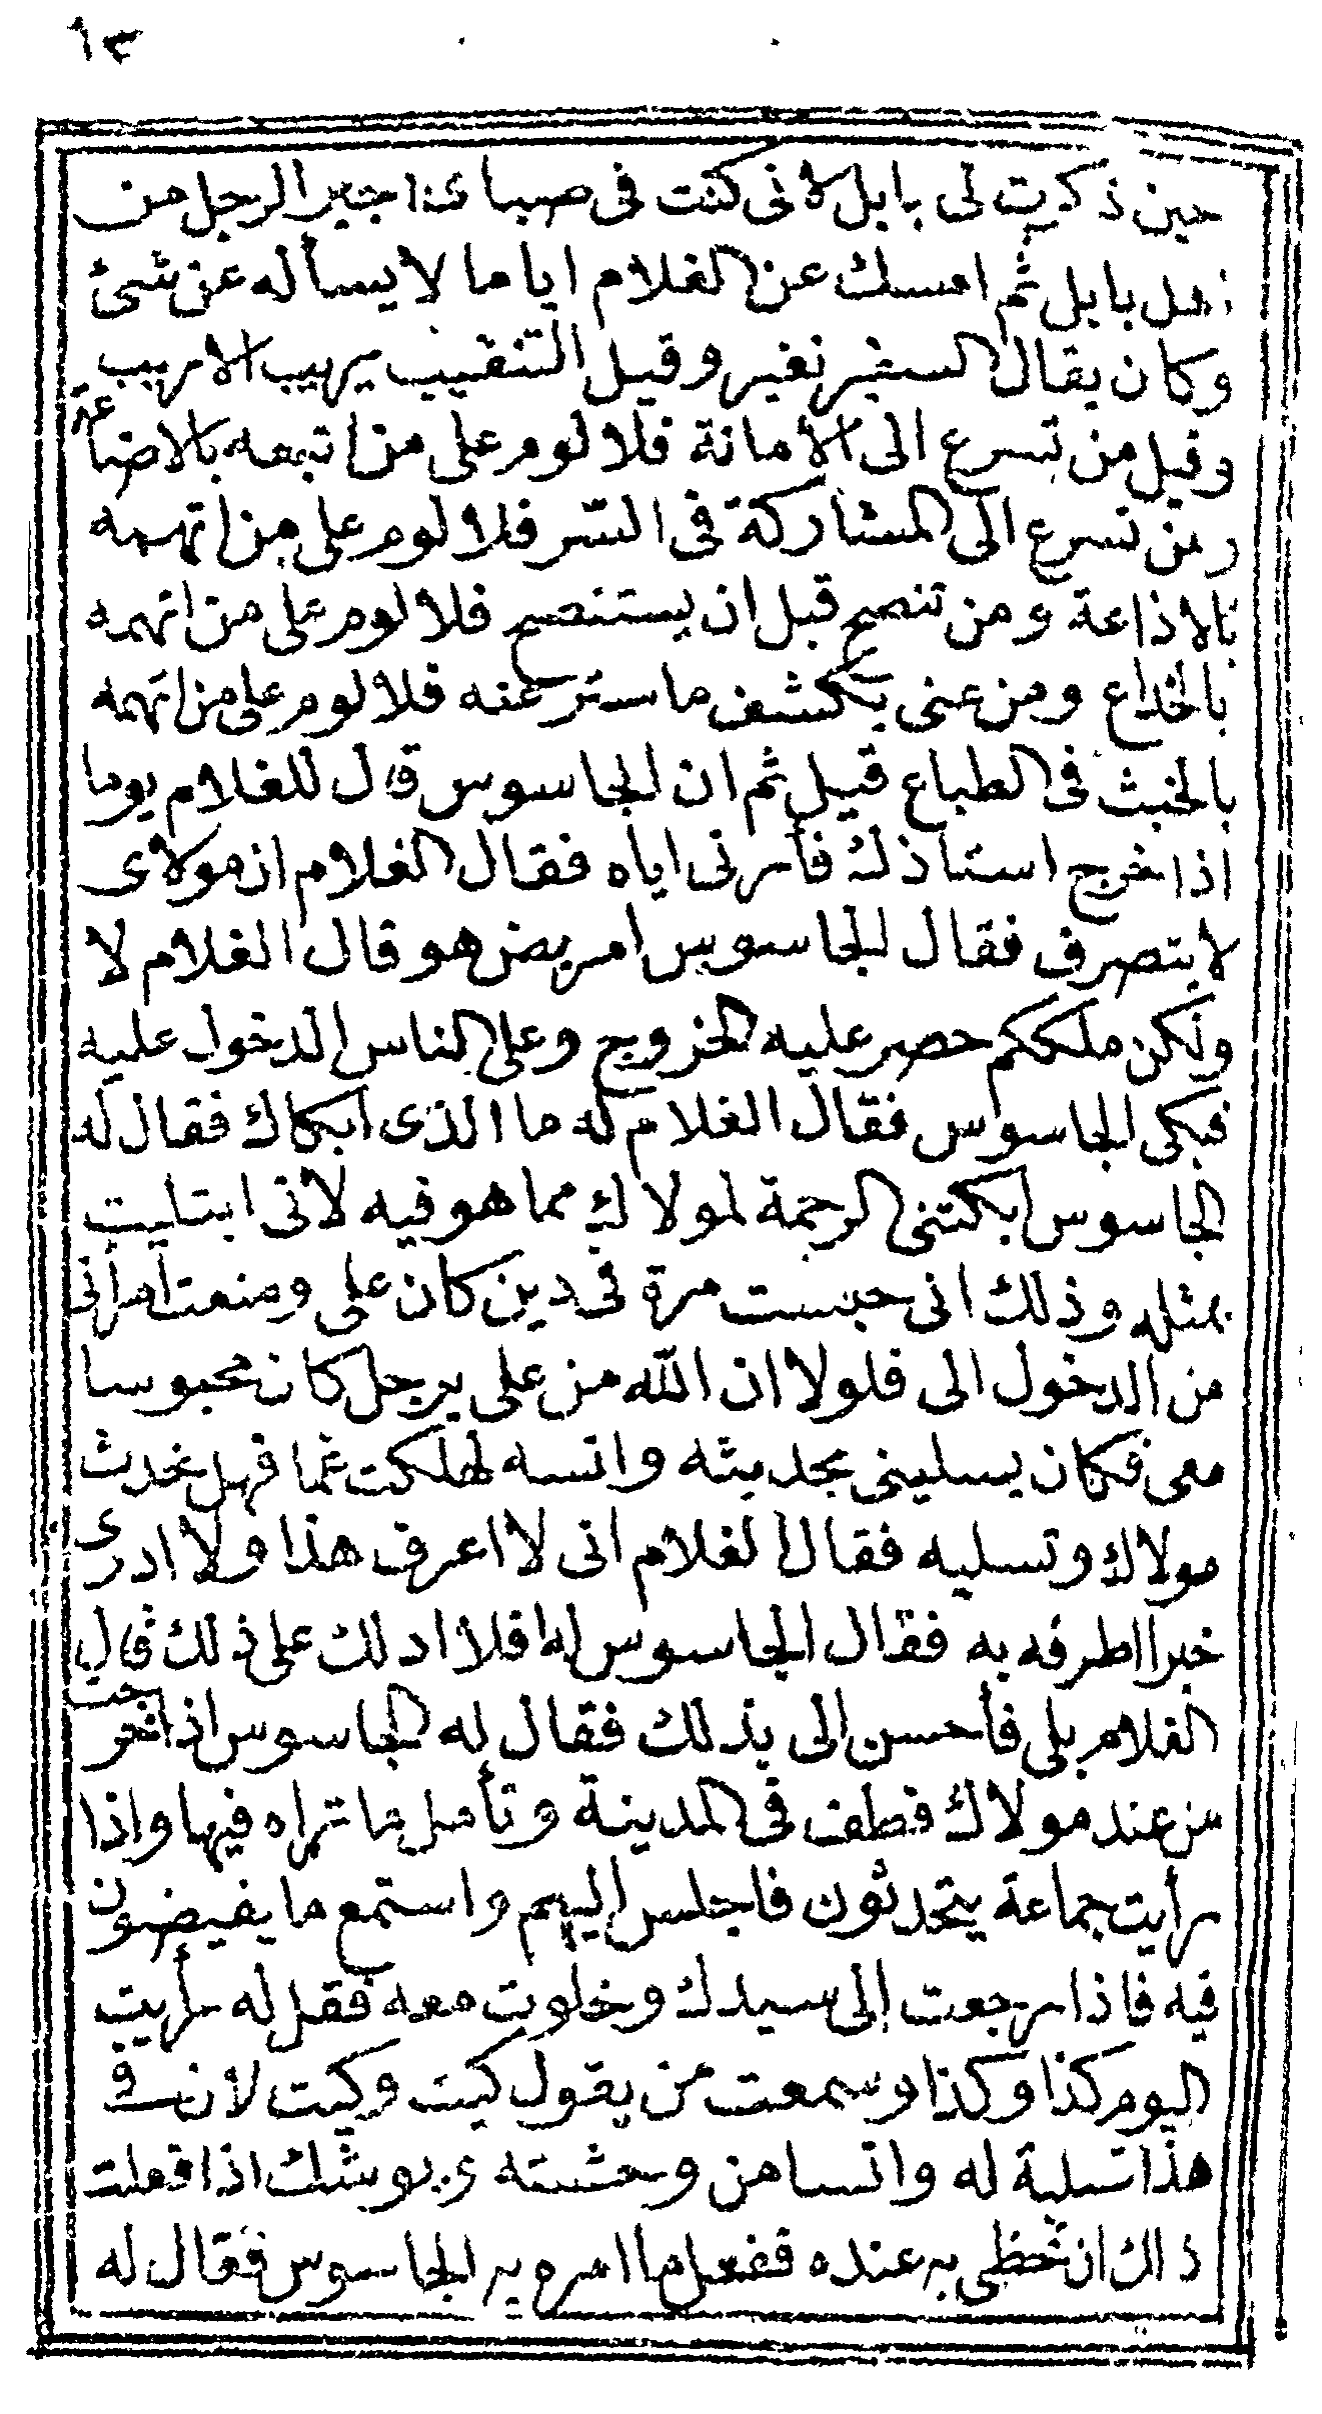 ٦٣
حين ذكرت لى بابل لانى كنت فى صباى اجير الرجل من
اهل بابل ثم امسك عن الغلام اياما لا يسأله عن شئ
وكان يقال السفير نفير وقيل التنقيب يريب الاريب
وقيل من تسرع الى الامانة فلا لوم على من اتهمه بالاضاعة
ومن تسرع الى المشاركة فى السر فلا لوم على من اتهمه
بالاذاعة ومن تنصح قبل ان يستنصح فلا لوم على من اتهمه
بالخداع ومن عنى بكشف ما ستر عنه فلا لوم على من اتهمه
بالخبث فى الطباع قيل ثم ان الجاسوس قال للغلام يوما
اذا خرج استاذك فأرنى اياه فقال الغلام ان مولاى
لا يتصرف فقال الجاسوس امريض هو قال الغلام لا
ولكن ملككم حصر عليه الخروج وعلى الناس الدخول عليه
فبكى الجاسوس فقال الغلام له ما الذى ابكاك فقال له
الجاسوس ابكتنى الرحمة لمولاك مما هو فيه لانى ابتليت
بمثله وذلك انى حبست مرة فى دين كان على ومنعت امرأتى
من الدخول الى فلولا ان الله من على برجل كان محبوسا
معى فكان يسلينى بحديثه وانسه لهلكت غما فهل تحدث
مولاك وتسليه فقال الغلام انى لا اعرف هذا ولا ادرى
خبرا اطرفه به فقال الجاسوس له افلا ادلك على ذلك قال
الغلام بلى فأحسن الى بذلك فقال له الجاسوس اذا خرجت
من عند مولاك فطف فى المدينة وتأمل ما تراه فيها واذا
رأيت جماعة يتحدثون فاجلس اليهم واستمع ما يفيضون
فيه فاذا رجعت إلى سيدك وخلوت معه فقل له رأيت
اليوم كذا وكذا وسمعت من يقول كيت وكيت لان فى
هذا تسلية له وانسا من وحشته ويوشك اذا فعلت
ذلك ان تحظى به عنده ففعل ما امره به الجاسوس فقال له